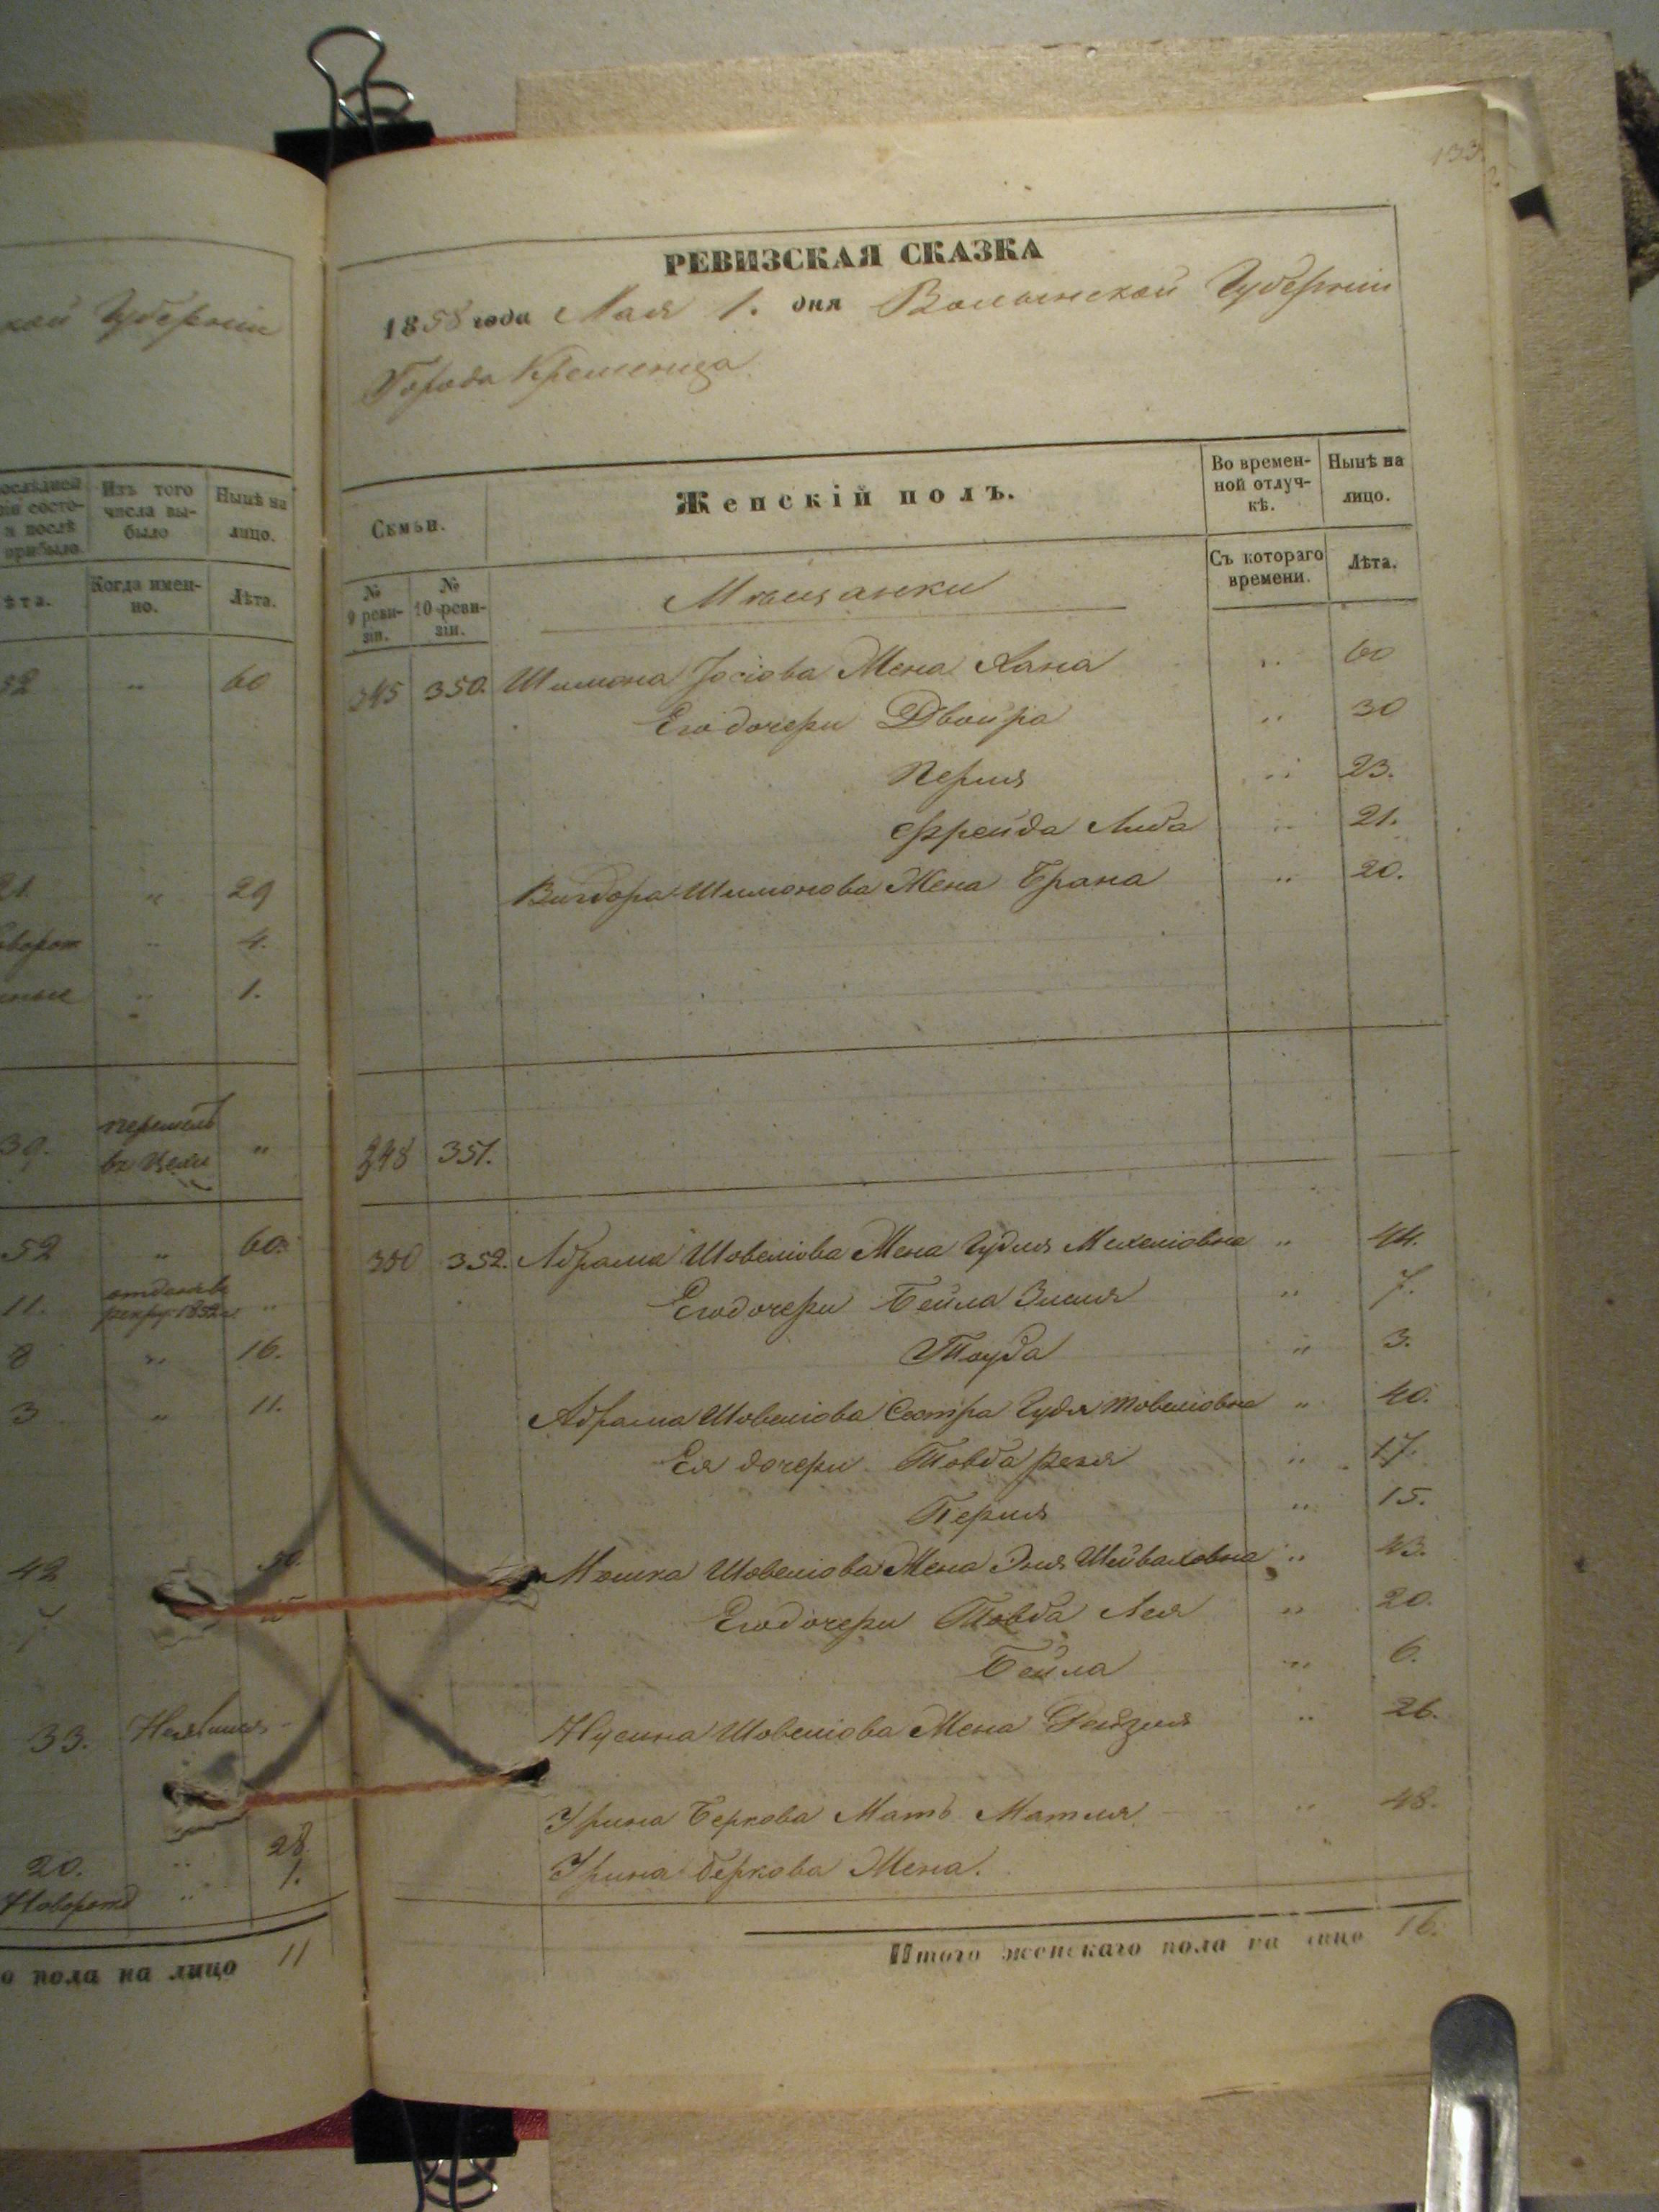 кой Губерніи
Изъ того числа выбыло
Нынѣ на лицо.
Когда именно.
Лѣта.
52 " 60
21. " 29
" 4.
" 1.
39. перешелъ "
52 " 60.
11. "
8 " 16.
3 " 11.
42
7
33.
20. " 28.
" 1.
о пола на лицо 11
133
РЕВИЗСКАЯ СКАЗКА
1858 года Мая 1. дня Волынской Губерніи
Города Кременца
Семьи.
Женскій полъ.
Во временной отлучкѣ.
Нынѣ на лицо.
№ 9 ревизіи.
№ 10 ревизіи.
Мѣщанки
Съ котораго времени.
Лѣта.
345 350. Шимона Іосіова Жена Хана " 60
Его дочери Двойра " 30
Перля " 23.
Фрейда Либа " 21.
Вигдора Шимонова Жена Брана " 20.
348 351.
350 352. Абрама Шовеліова Жена Гудля Мехеліовна " 44.
Его дочери Бейла Злня " 7.
Тауба " 3.
Абрама Шовеліова Сестра Гудя Шовеліовна " 40.
Ея дочери Товба Рехля " 17.
Перля " 15.
Мошка Шовеліова Жена Эня Шейваховна " 43.
Его дочери Товба Лея " 20.
Бейла " 6.
Нусина Шовеліова Жена Рейзля " 26.
Ірина Беркова Мать Матля " 48.
Ірина Беркова Жена.
Итого женскаго пола на лицо 16.